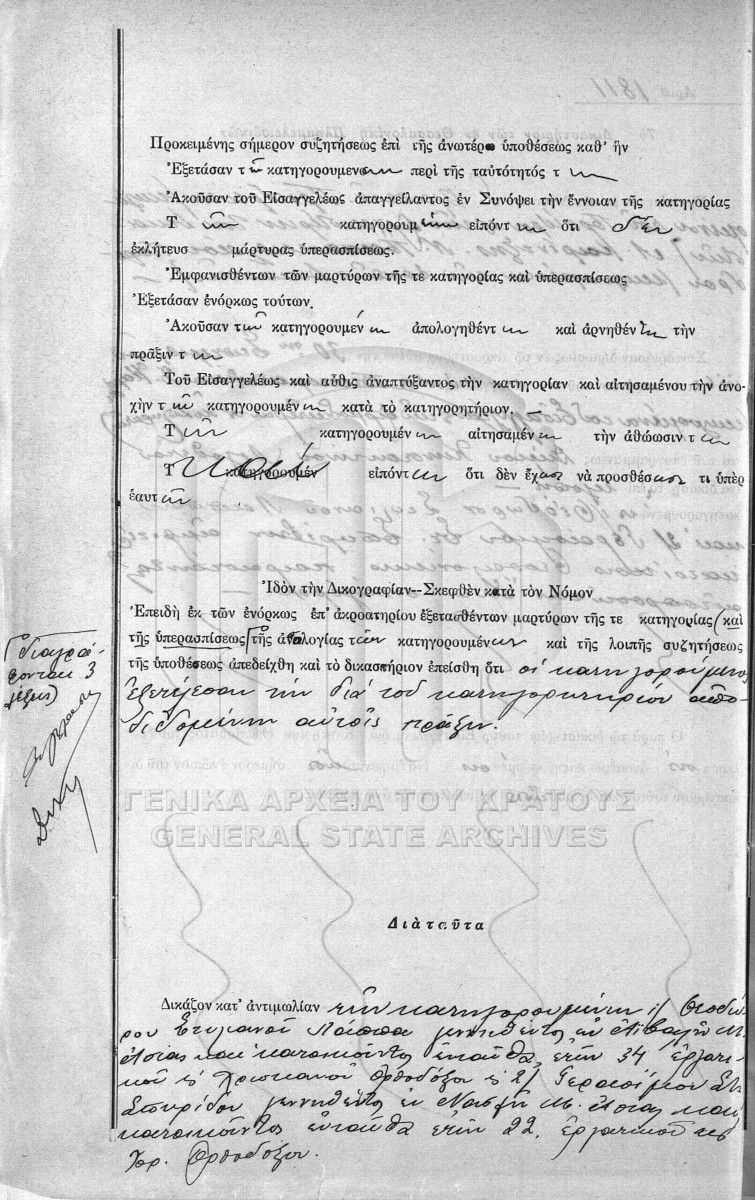 1811
Προκειμένης σήμερον συζητήσεως ἐπὶ τῆς ἀνωτέρω ὑποθέσεως καθ' ἣν
Ἐξετάσαν τῶν κατηγορουμένων περὶ τῆς ταὐτότητός των
Ἀκοῦσαν τοῦ Εἰσαγγελέως ἀπαγγείλαντος ἐν Συνόψει τὴν ἔννοιαν τῆς κατηγορίας
Τῶν κατηγορουμένων εἰπόντων ὅτι δὲν
ἐκλήτευσ μάρτυρας ὑπερασπίσεως.
Ἐμφανισθέντων τῶν μαρτύρων τῆς τε κατηγορίας καὶ ὑπερασπίσεως
Ἐξετάσαν ἐνόρκως τούτων.
Ἀκοῦσαν τῶν κατηγορουμένων ἀπολογηθέντων καὶ ἀρνηθέντων τὴν
πρᾶξιν των
Τοῦ Εἰσαγγελέως καὶ αὖθις ἀναπτύξαντος τὴν κατηγορίαν καὶ αἰτησαμένου τὴν ἀνο-
χὴν τῶν κατηγορουμένων κατὰ τὸ κατηγορητήριον.
Τῶν κατηγορουμένων αἰτησαμένων τὴν ἀθώωσιν των
Τ κατηγορουμέν εἰπόντων ὅτι δὲν ἔχ νὰ προσθέσ τι ὑπὲρ
ἑαυτῶν
Ἰδὸν τὴν Δικογραφίαν--Σκεφθὲν κατὰ τὸν Νόμον
Ἐπειδὴ ἐκ τῶν ἐνόρκως ἐπ' ἀκροατηρίου ἐξετασθέντων μαρτύρων τῆς τε κατηγορίας (καὶ
τῆς ὑπερασπίσεως) τῆς ἀπολογίας τῶν κατηγορουμένων καὶ τῆς λοιπῆς συζητήσεως
τῆς ὑποθέσεως ἀπεδείχθη καὶ τὸ δικαστήριον ἐπείσθη ὅτι οἱ κατηγορούμενοι
ἐξετέλεσαν τὴν διὰ τοῦ κατηγορητηρίου ἀπο-
διδομένην αὐτοῖς πρᾶξιν.
(διαγρά-
φονται 3
λέξεις)
ΓΕΝΙΚΑ ΑΡΧΕΙΑ ΤΟΥ ΚΡΑΤΟΥΣ
GENERAL STATE ARCHIVES
Διὰ ταῦτα
Δικάζον κατ' ἀντιμωλίαν τῶν κατηγορουμένων 1) Θεοδώ-
ρου Στυλιανοῦ Πάππα γεννηθέντος ἐν Μ.
Ἀσίας καὶ κατοικοῦντος ἐνταῦθα ἐτῶν 34 ἐργατι-
κοῦ Χριστιανοῦ Ὀρθοδόξου 2) Γερασίμου
Σπυρίδου γεννηθέντος ἐν Μ. Ἀσίας καὶ
κατοικοῦντος ἐνταῦθα ἐτῶν 22, ἐργατικοῦ
Χρ. Ὀρθοδόξου.